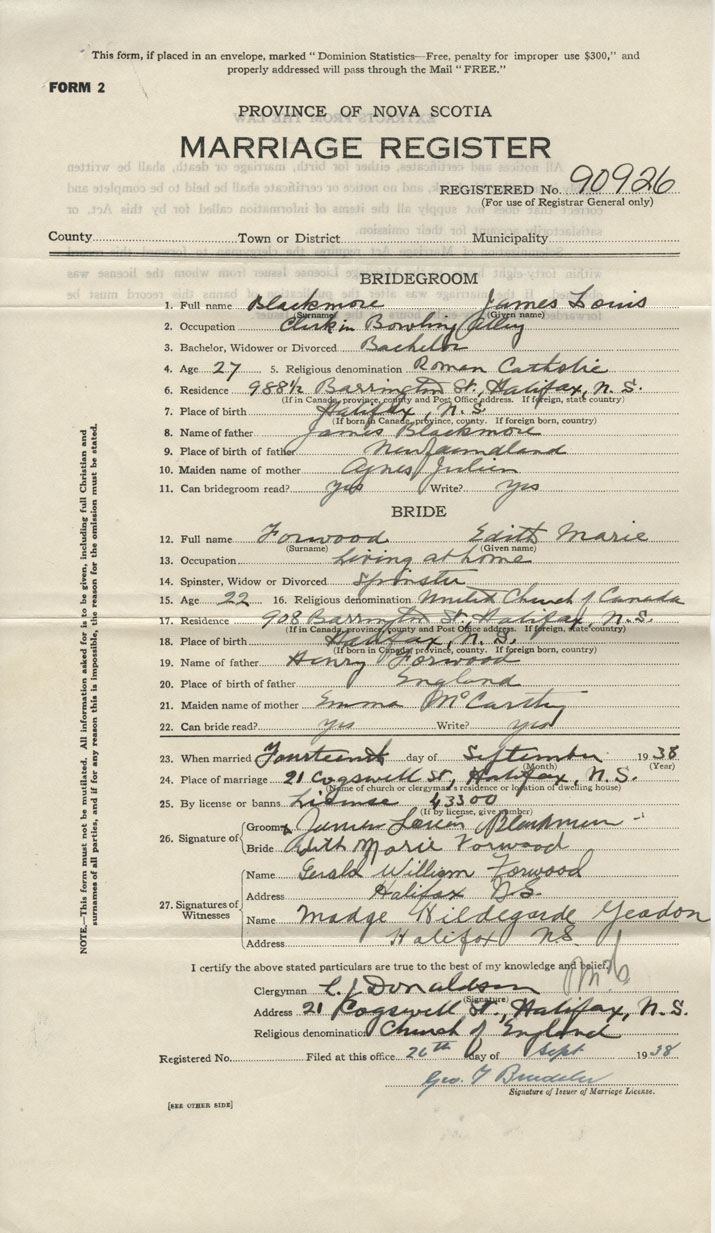 This form, if placed in an envelope, marked "Dominion Statistics—Free, penalty for improper use $300," and
properly addressed will pass through the Mail "FREE."
FORM 2
PROVINCE OF NOVA SCOTIA
MARRIAGE REGISTER
REGISTERED No. 90926
(For use of Registrar General only)
County Town or District Municipality
BRIDEGROOM
1. Full name Blackmore James Louis
(Surname) (Given name)
2. Occupation Clerk in Bowling Alley
3. Bachelor, Widower or Divorced Bachelor
4. Age 27 5. Religious denomination Roman Catholic
6. Residence 988½ Barrington St, Halifax, N.S.
(If in Canada, province, county and Post Office address. If foreign, state country)
7. Place of birth Halifax, N.S.
(If born in Canada, province, county. If foreign born, country)
8. Name of father James Blackmore
9. Place of birth of father Newfoundland
10. Maiden name of mother Agnes Julien
11. Can bridegroom read? yes Write? yes
BRIDE
12. Full name Forwood Edith Marie
(Surname) (Given name)
13. Occupation Living at home
14. Spinster, Widow or Divorced Spinster
15. Age 22 16. Religious denomination United Church of Canada
17. Residence 908 Barrington St, Halifax, N.S.
(If in Canada, province, county and Post Office address. If foreign, state country)
18. Place of birth Halifax, N.S.
(If born in Canada, province, county. If foreign born, country)
19. Name of father Henry Forwood
20. Place of birth of father England
21. Maiden name of mother Emma McCarthy
22. Can bride read? yes Write? yes
23. When married Fourteenth day of September 1938
(Month) (Year)
24. Place of marriage 21 Cogswell St, Halifax, N.S.
(Name of church or clergyman's residence or location of dwelling house)
25. By license or banns License 43300
(If by license, give number)
26. Signature of
Groom x James Louis Blackmore
Bride Edith Marie Forwood
27. Signatures of Witnesses
Name Gerald William Forwood
Address Halifax NS.
Name Madge Hildegarde Yeadon
Address Halifax NS.
I certify the above stated particulars are true to the best of my knowledge and belief.
Clergyman Donaldson
(Signature)
Address 21 Cogswell St., Halifax, N.S.
Religious denomination Church of England
Registered No. Filed at this office 26th day of Sept 1938
Geo. 
Signature of Issuer of Marriage License.
[SEE OTHER SIDE]
NOTE.—This form must not be mutilated. All information asked for is to be given, including full Christian and
surnames of all parties, and if for any reason this is impossible, the reason for the omission must be stated.